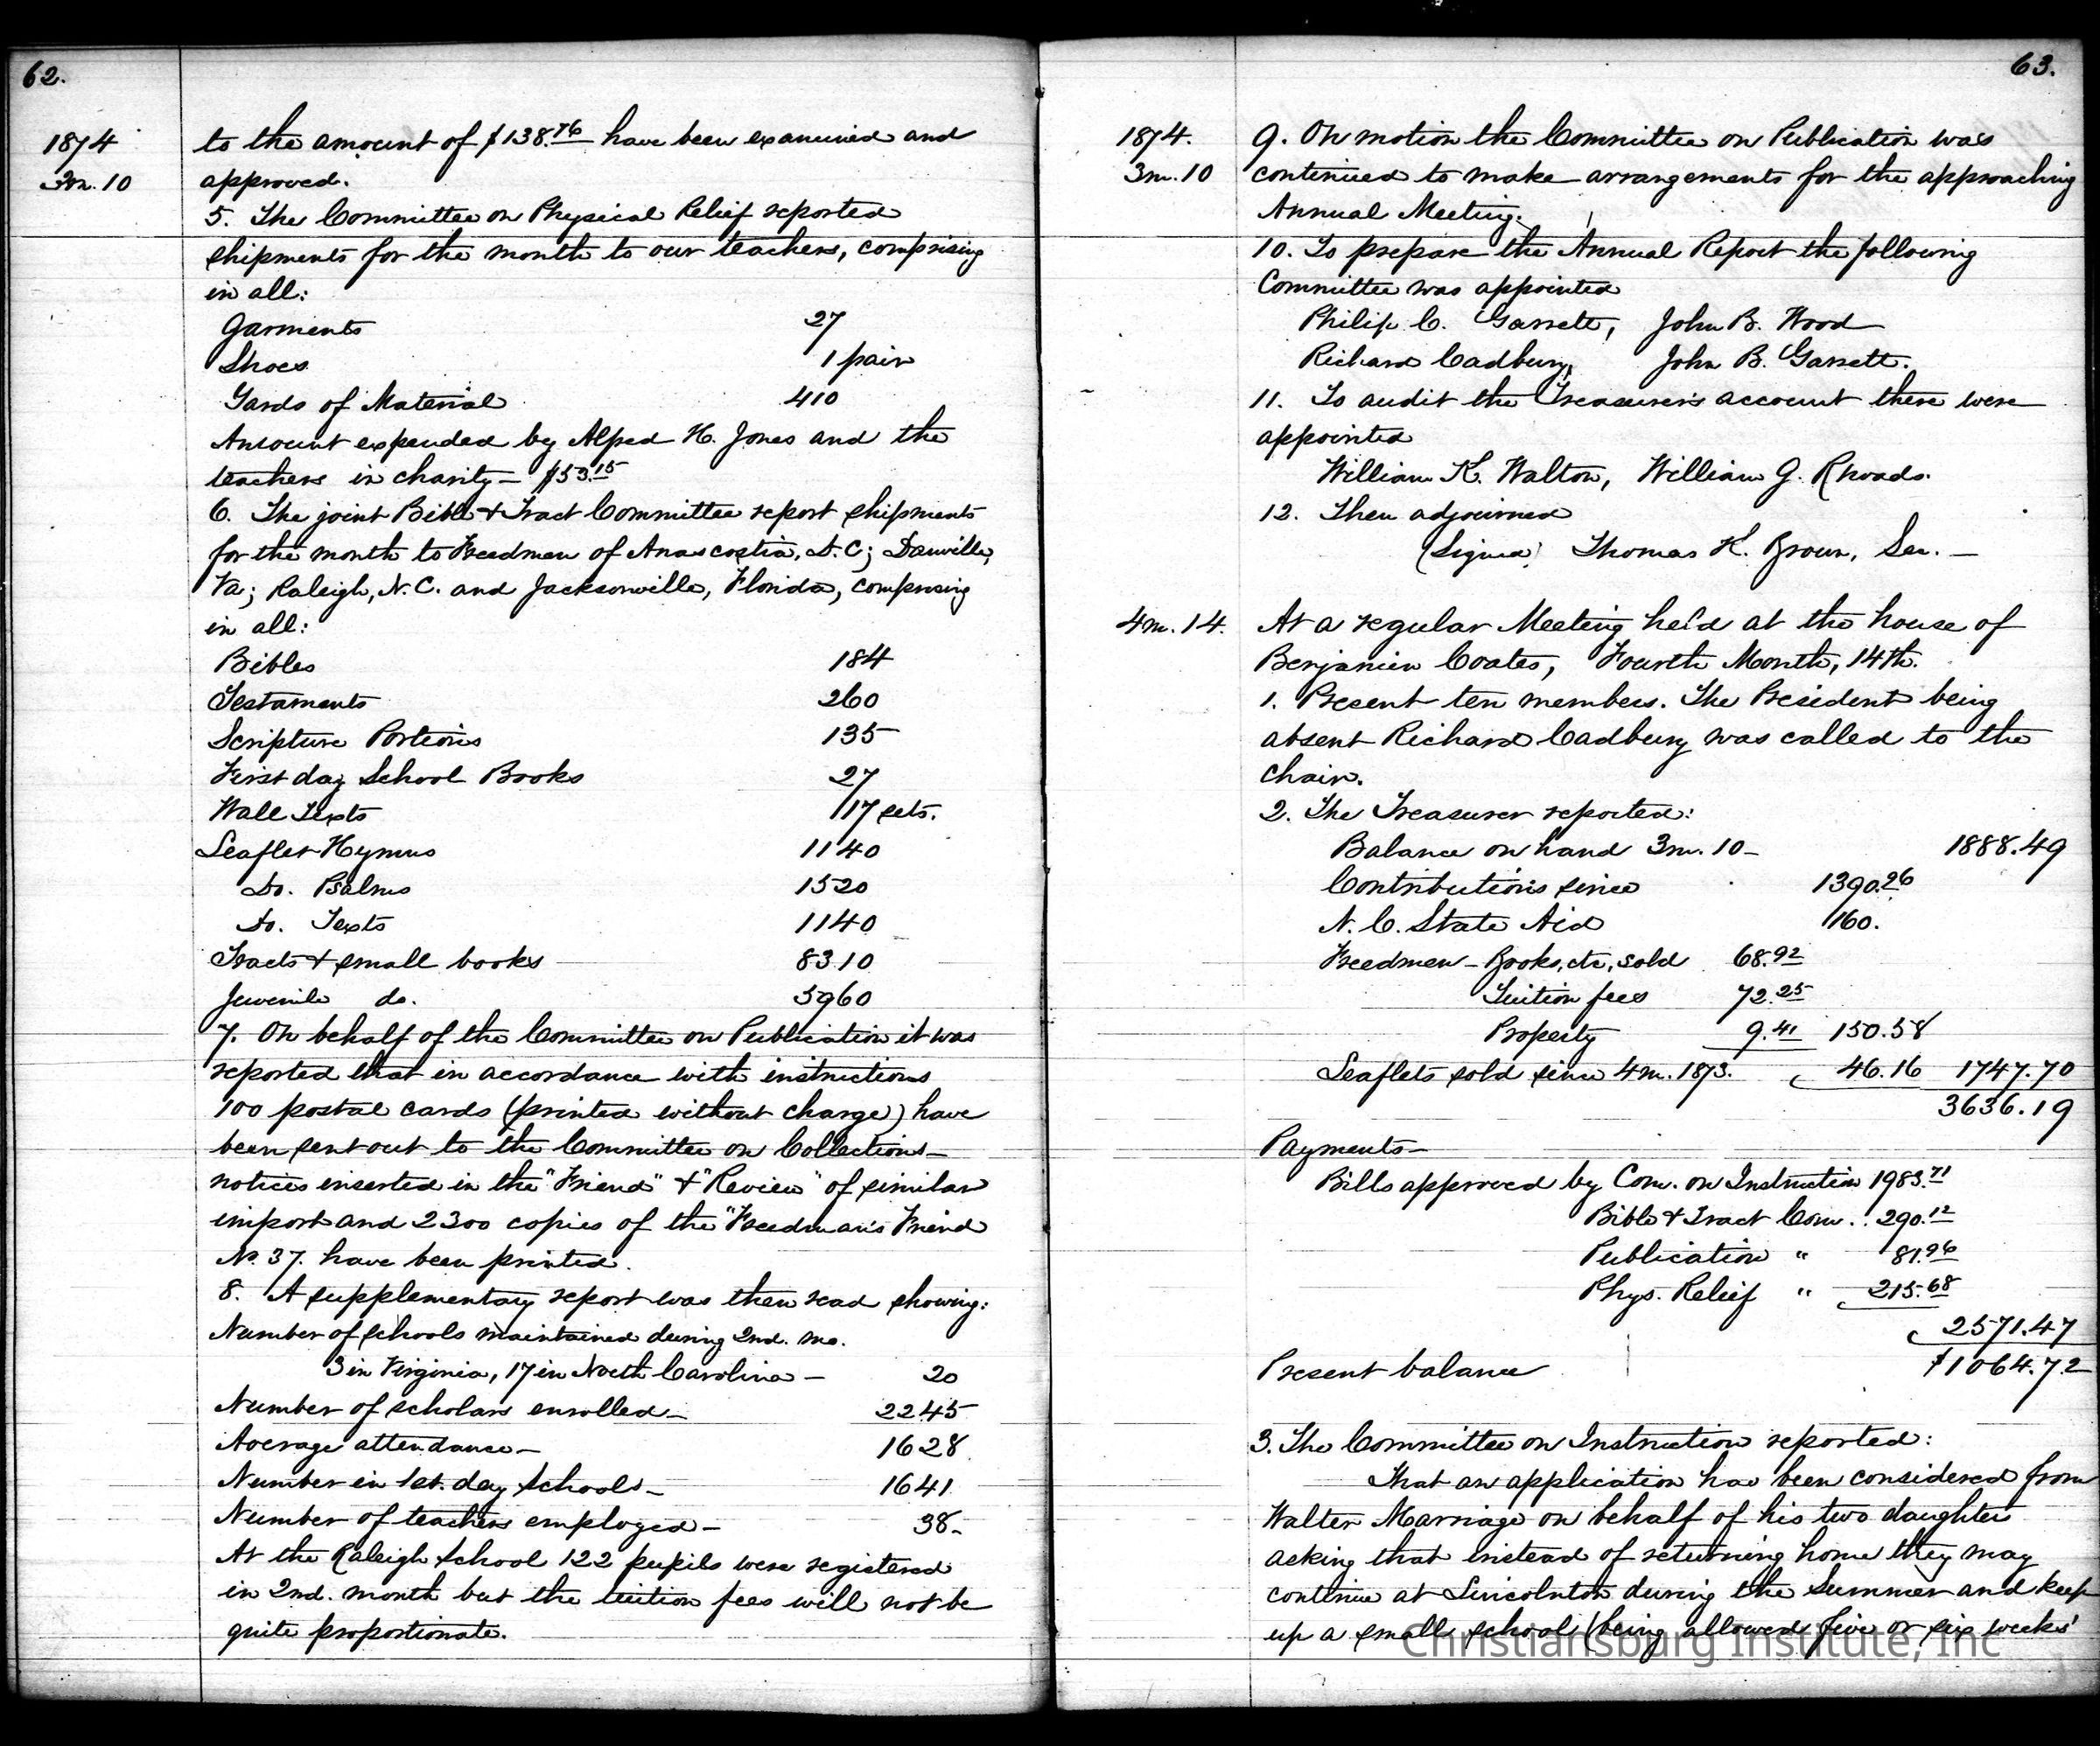 62.
1874
3m. 10
to the amount of $138.76 have been examined and
approved.
5. The Committee on Physical Relief reported
shipments for the month to our teachers, comprising
in all:
Garments 27
Shoes 1 pair
Yards of Material 410
Amount expended by Alfred H. Jones and the
teachers in charity – $53.15
6. The joint Bible & Tract Committee report shipments
for the month to Freedmen of Anascostia, D.C; Danville,
Va; Raleigh, N.C. and Jacksonville, Florida, comprising
in all:
Bibles 184
Testaments 260
Scripture Portions 135
First day School Books 27
Wall Texts 17 sets.
Leaflet Hymns 1140
Do. Psalms 1520
Do. Texts 1140
Tracts & small books 8310
Juvenile do. 5960
7. On behalf of the Committee on Publication it was
reported that in accordance with instructions
100 postal cards (printed without charge) have
been sent out to the Committee on Collections –
notices inserted in the "Friend" & "Review" of similar
import and 2300 copies of the "Freedman's Friend
No. 37. have been printed.
8. A supplementary report was then read showing:
Number of schools maintained during 2nd. mo.
3 in Virginia, 17 in North Carolina – 20
Number of scholars enrolled – 2245
Average attendance – 1628
Number in 1st. day Schools – 1641
Number of teachers employed – 38 –
At the Raleigh School 122 pupils were registered
in 2nd. month but the tuition fees will not be
quite proportionate.
63.
1874.
3m. 10
9. On motion the Committee on Publication was
continued to make arrangements for the approaching
Annual Meeting.
10. To prepare the Annual Report the following
Committee was appointed
Philip C. Garrett, John B. Wood
Richard Cadbury, John B. Garrett.
11. To audit the Treasurer's account there were
appointed
William K. Walton, William G. Rhoads.
12. Then adjourned
(Signed) Thomas K. Brown, Sec. –
4m. 14.
At a regular Meeting held at the house of
Benjamin Coates, Fourth Month, 14th.
1. Present ten members. The President being
absent Richard Cadbury was called to the
chair.
2. The Treasurer reported:
Balance on hand 3m. 10 – 1888.49
Contributions since 1390.26
N. C. State Aid 160.
Freedmen – Books, etc, sold 68.92
Tuition fees 72.25
Property 9.41 150.58
Leaflets sold since 4m. 1873. 46.16 1747.70
3636.19
Payments –
Bills approved by Com. on Instruction 1983.71
Bible & Tract Com. . 290.12
Publication " 81.96
Phys. Relief " 215.68
2571.47
Present balance $1064.72
3. The Committee on Instruction reported:
That an application had been considered from
Walter Marriage on behalf of his two daughters
asking that instead of returning home they may
continue at Lincolnton during the Summer and keep
up a small school (being allowed five or six weeks'
Christiansburg Institute, Inc